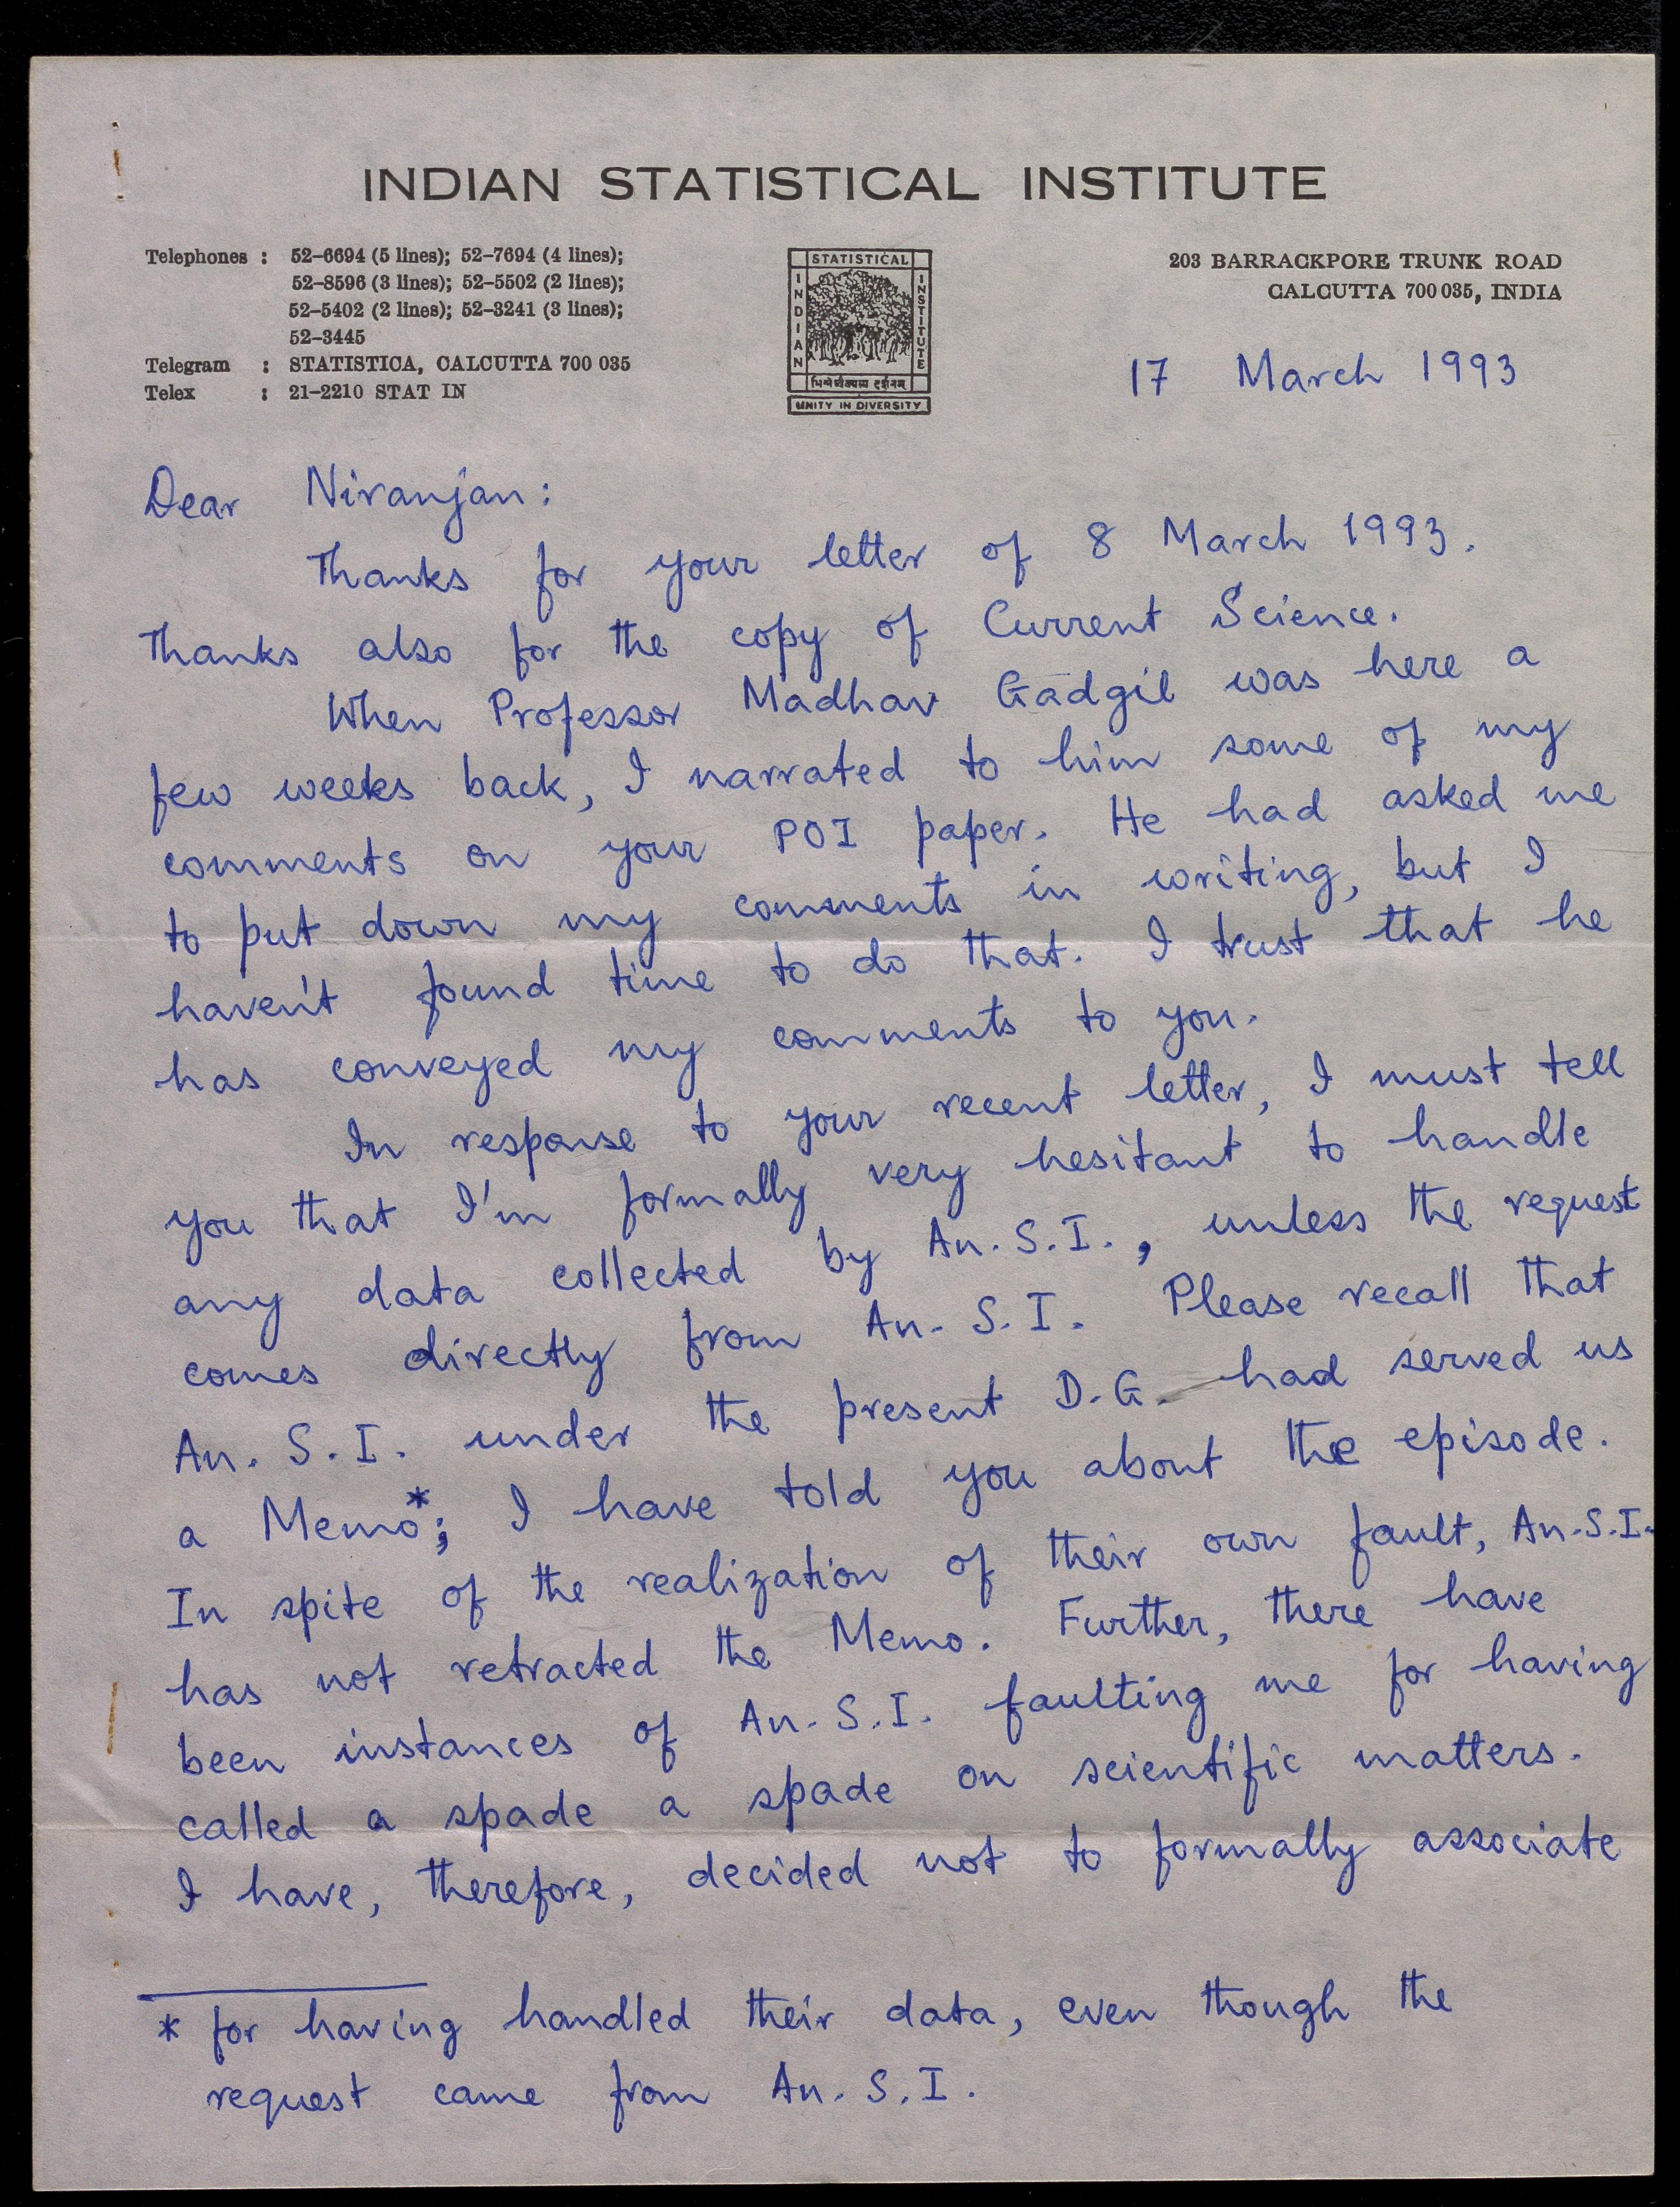 INDIAN STATISTICAL INSTITUTE
Telephones : 52-6694 (5 lines); 52-7694 (4 lines);
52-8596 (3 lines); 52-5502 (2 lines);
52-5402 (2 lines); 52-3241 (3 lines);
52-3445
Telegram : STATISTICA, CALCUTTA 700 035
Telex : 21-2210 STAT IN
STATISTICAL
INDIAN
INSTITUTE
UNITY IN DIVERSITY
203 BARRACKPORE TRUNK ROAD
CALCUTTA 700 035, INDIA
17 March 1993
Dear Niranjan:
Thanks for your letter of 8 March 1993.
Thanks also for the copy of Current Science.
When Professor Madhav Gadgil was here a
few weeks back, I narrated to him some of my
comments on your POI paper. He had asked me
to put down my comments in writing, but I
haven't found time to do that. I trust that he
has conveyed my comments to you.
In response to your recent letter, I must tell
you that I'm formally very hesitant to handle
any data collected by An. S. I., unless the request
comes directly from An. S. I. Please recall that
An. S. I. under the present D.G. had served us
a Memo*; I have told you about the episode.
In spite of the realization of their own fault, An.S.I.
has not retracted the Memo. Further, there have
been instances of An. S. I. faulting me for having
called a spade a spade on scientific matters.
I have, therefore, decided not to formally associate
* for having handled their data, even though the
request came from An. S. I.